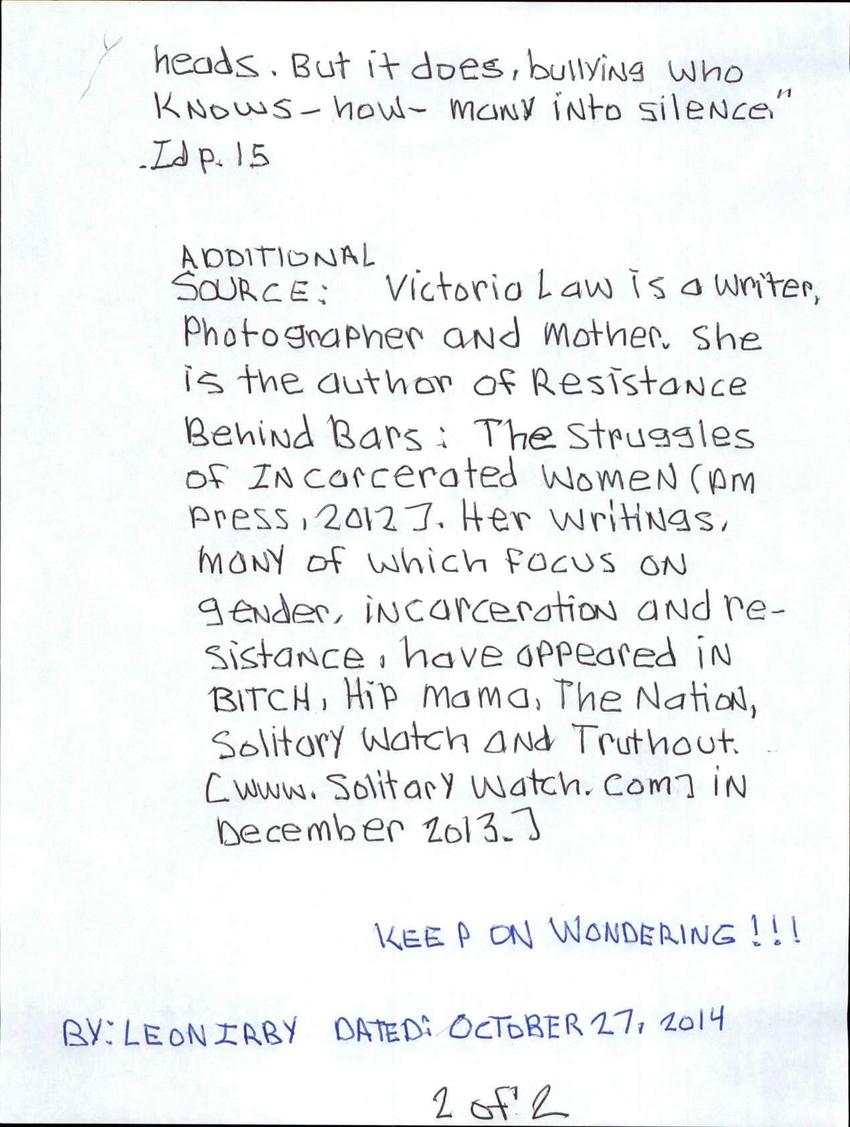 heads. But it does, bullying who
knows-how-many into silence."
.Id p. 15
ADDITIONAL
SOURCE: Victoria Law is a writer,
Photographer and mother. She
is the author of Resistance
Behind Bars: The Struggles
of Incarcerated Women (PM
Press, 2012]. Her writings,
many of which focus on
gender, incarceration and re-
sistance, have appeared in
BITCH, Hip Mama, The Nation,
Solitary Watch and Truthout.
[www.Solitary Watch.com] in
December 2013.]
KEEP ON WONDERING!!!
BY: LEON IRBY DATED: OCTOBER 27, 2014
2 of 2